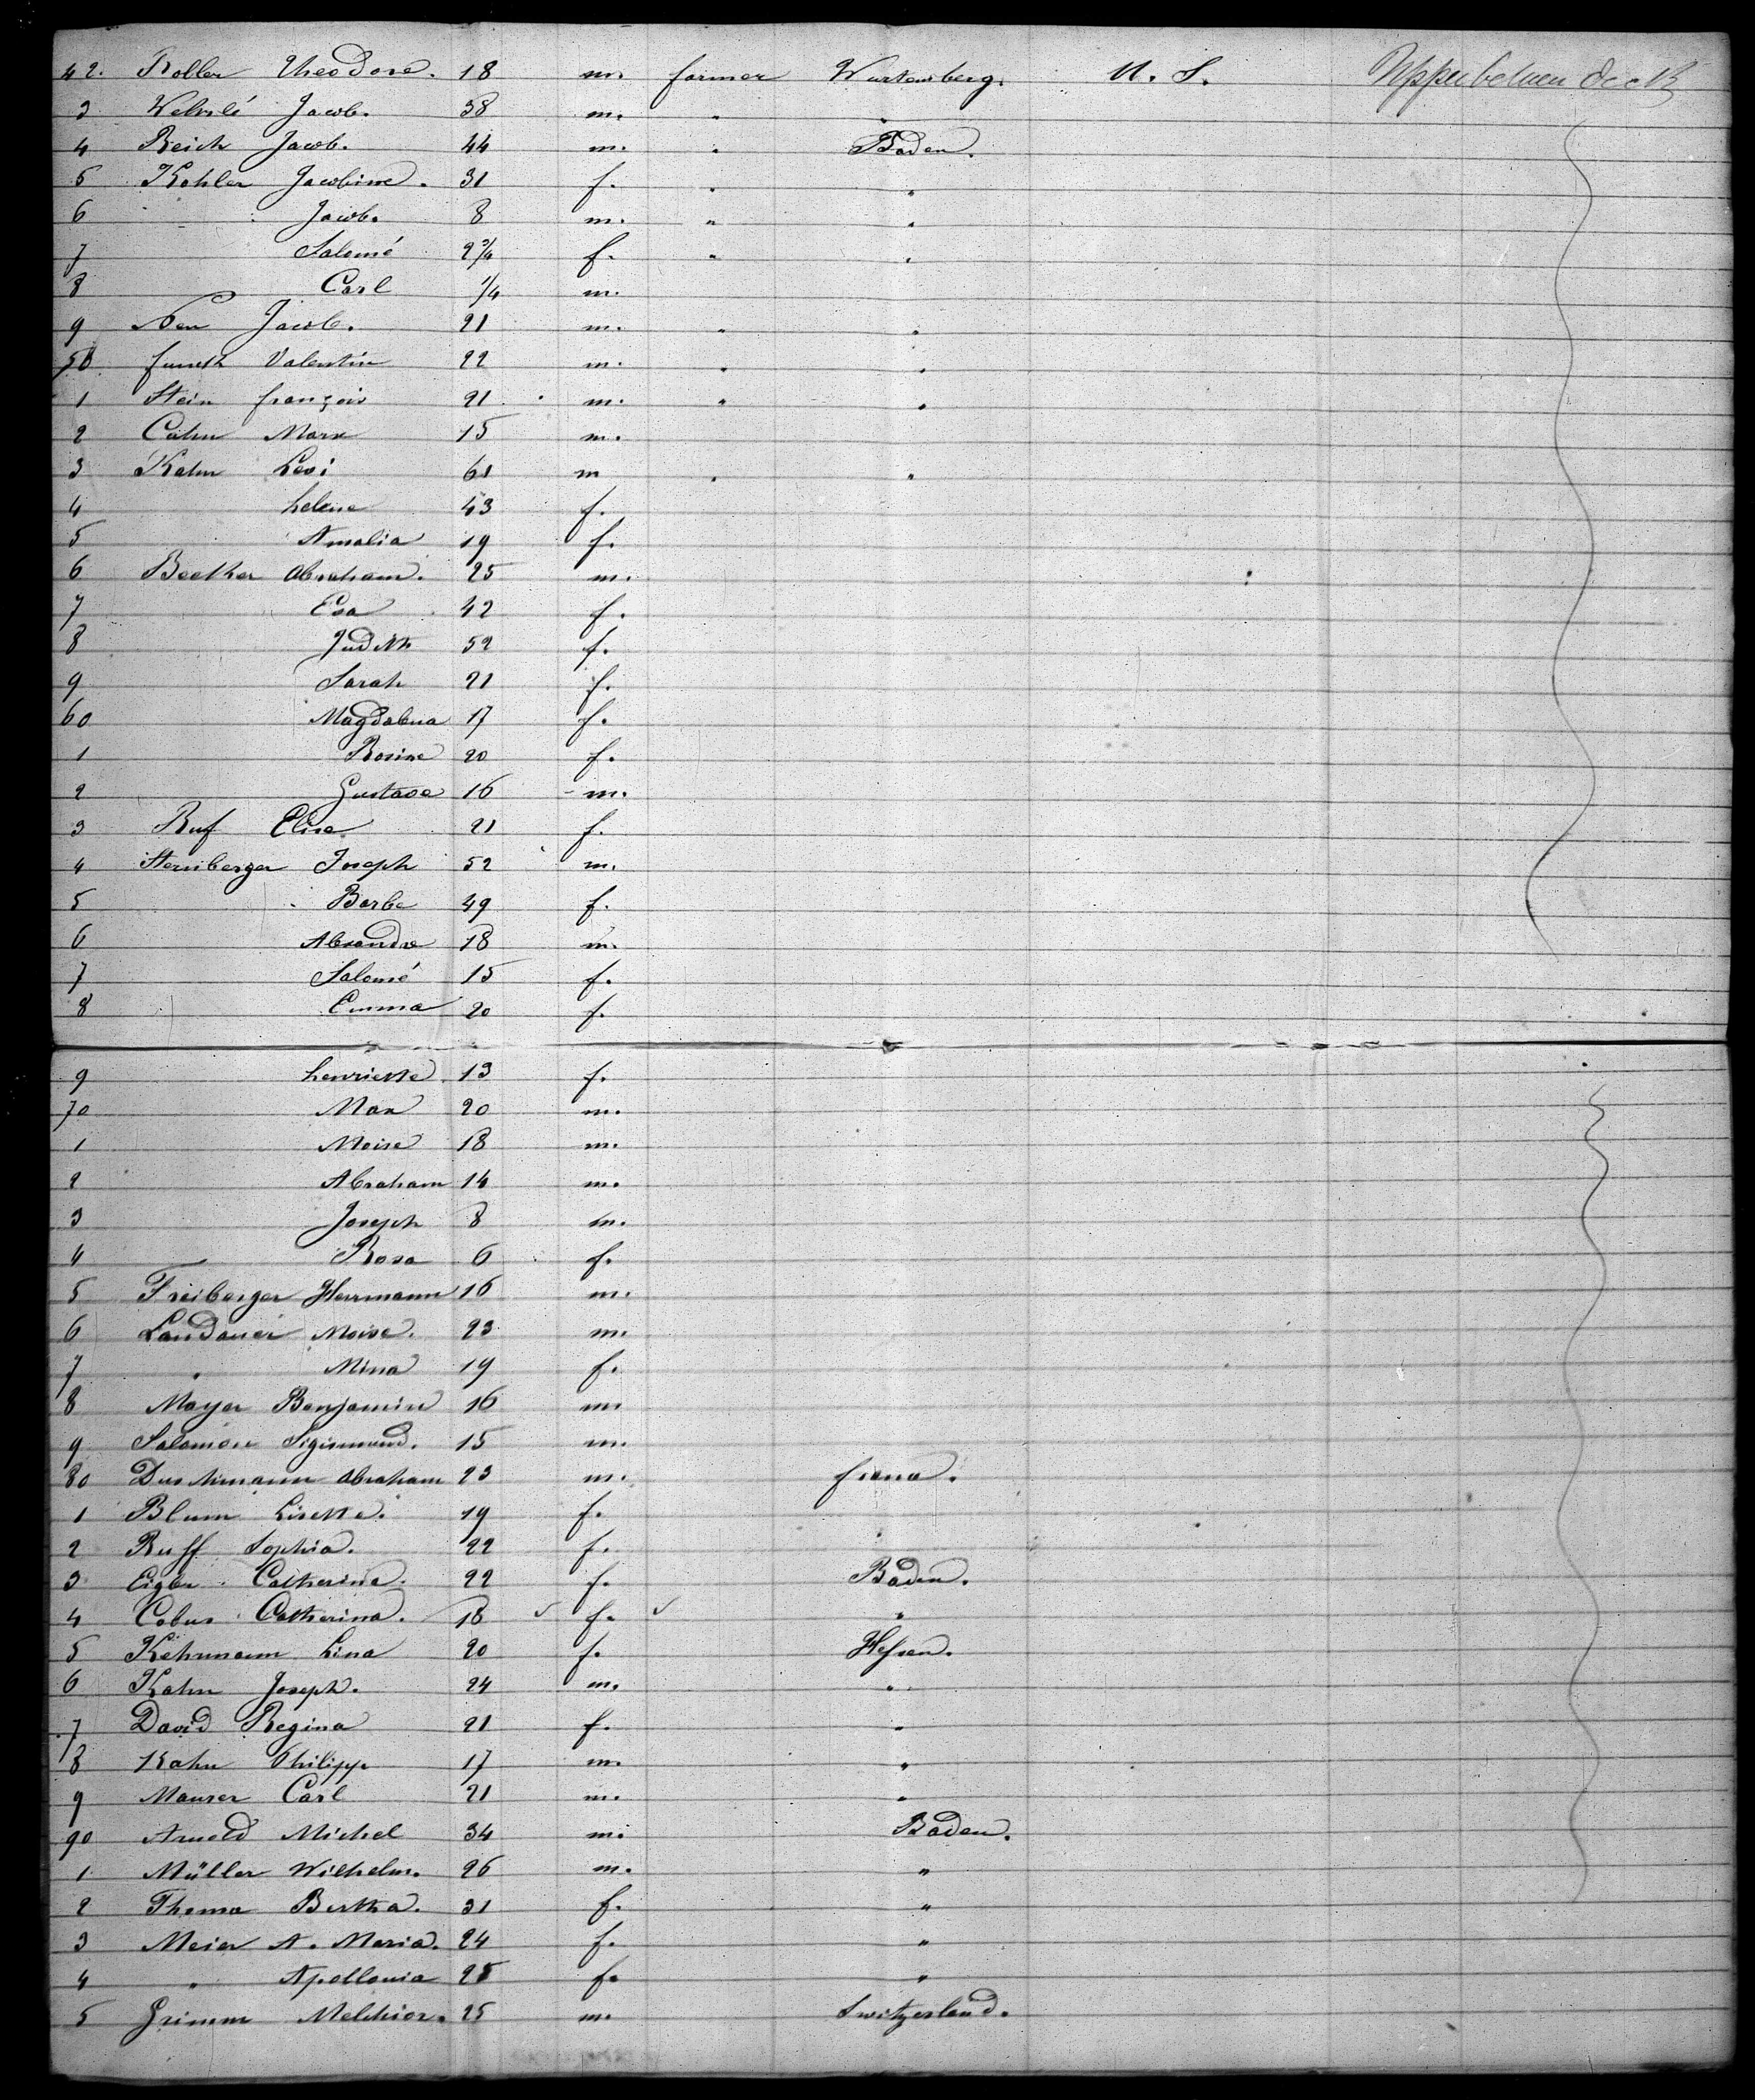 42. Roller Theodore. 18 m. farmer Wurtemberg. U. S. Upper between deck
3 Wehrlé Jacob. 38 m. " "
4 Reich Jacob. 44 m. " Baden.
5 Kohler Jacobine. 31 f. " "
6 " Jacob. 8 m. " "
7 Salomé 2 3/4 f. " "
8 Carl 1/4 m.
9 Neu Jacob. 21 m. " "
50 Valentin 22 m. " "
1 Stein françois 21 m. " "
2 Cahn Marx 15 m.
3 Kahn Levi 61 m " "
4 helene 43 f.
5 Amalia 19 f.
6 Beether Abraham. 25 m.
7 Eva 42 f.
8 Judith 52 f.
9 Sarah 21 f.
60 Magdalena 17 f.
1 Rosine 20 f.
2 Gustave 16 m.
3 Ruf Elise 21 f.
4 Sternberger Joseph 52 m.
5 " Barbe 49 f.
6 Alexandre 18 m.
7 Salomé 15 f.
8 Emma 20 f.
9 henriette 13 f.
70 Max 20 m.
1 Moise 18 m.
2 Abraham 14 m.
3 Joseph 8 m.
4 Rosa 6 f.
5 Freiberger Herrmann 16 m.
6 Landauer Moise. 23 m.
7 " Mina 19 f.
8 Mayer Benjamin 16 m
9 Salomon Sigismund. 15 m.
80 Abraham 23 m.
1 Blum Lisette. 19 f.
2 Ruff Sophia. 22 f.
3 Eigler Catherina. 22 f. Baden.
4 Cobus Catherina. 18 f. "
5 Kehrmann Lina 20 f. Hessen.
6 Kahn Joseph. 24 m. "
7 David Regina 21 f. "
8 Kahn Philipp. 17 m. "
9 Maurer Carl 21 m. "
90 Arnold Michel 34 m. Baden.
1 Müller Wilhelm. 26 m. "
2 Thoma Bertha. 31 f. "
3 Meier A. Maria. 24 f. "
4 " Apollonia 25 f. "
5 Grimm Melchior. 25 m. Switzerland.